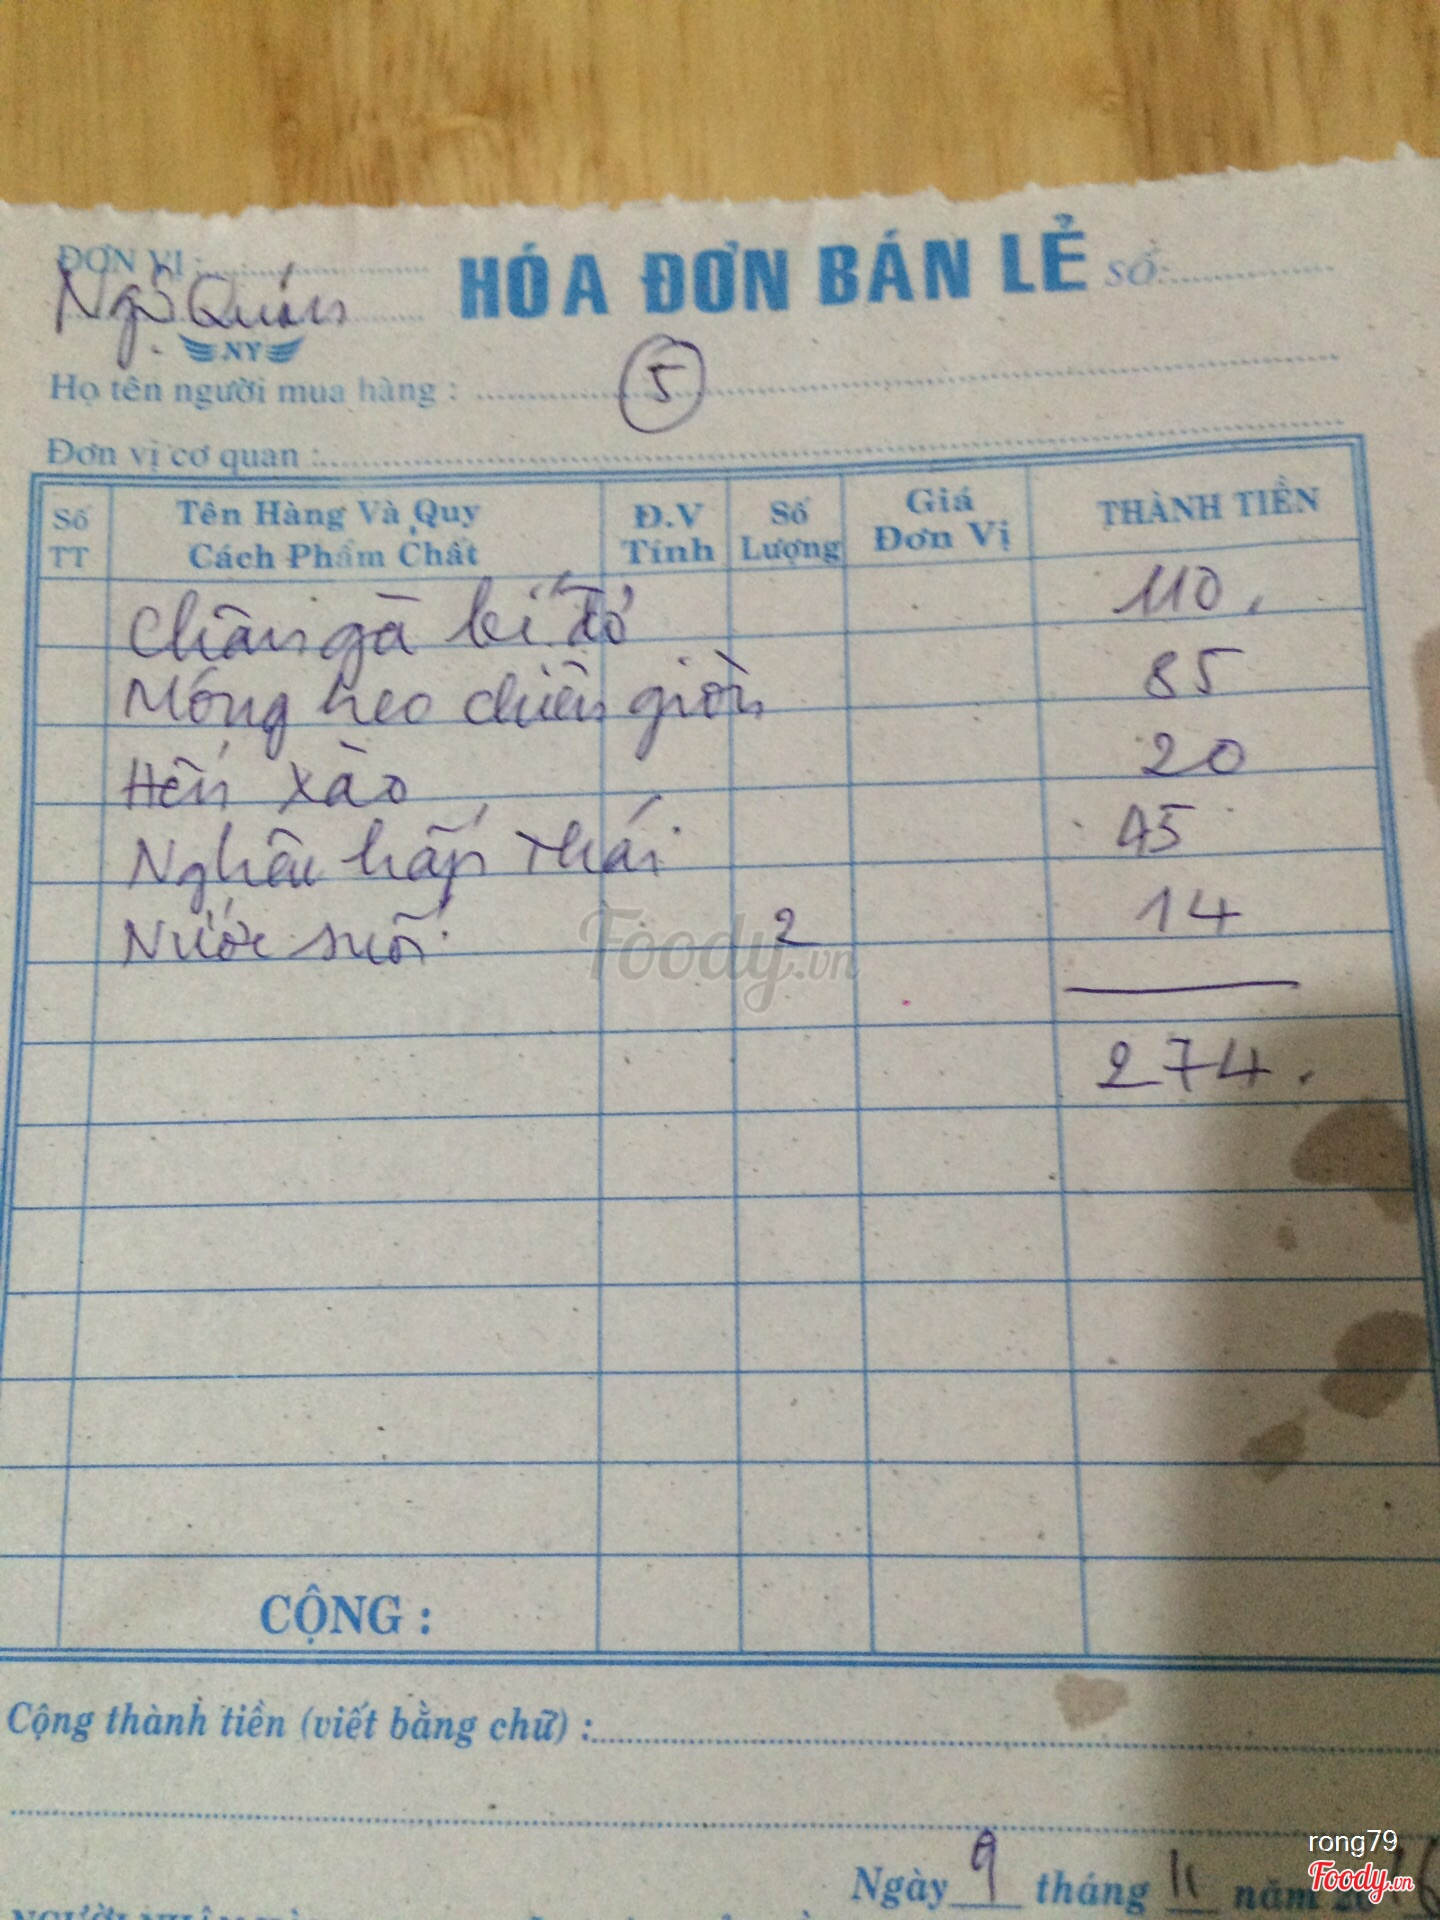 ĐƠN VỊ: HÓA ĐƠN BÁN LẺ SỐ:
Ngộ Quán
NY
Họ tên người mua hàng : 5
Đơn vị cơ quan :
Số TT Tên Hàng Và Quy Cách Phẩm Chất Đ.V Tính Số Lượng Giá Đơn Vị THÀNH TIỀN
Chân gà bí đỏ 110.
Móng heo chiên giòn 85
Hến xào 20
Nghêu hấp Thái 45
Nước suối 2 14
Foody.vn
274.
CỘNG :
Cộng thành tiền (viết bằng chữ) :
rong79
Foody.vn
Ngày 9 tháng 11 năm 20 16